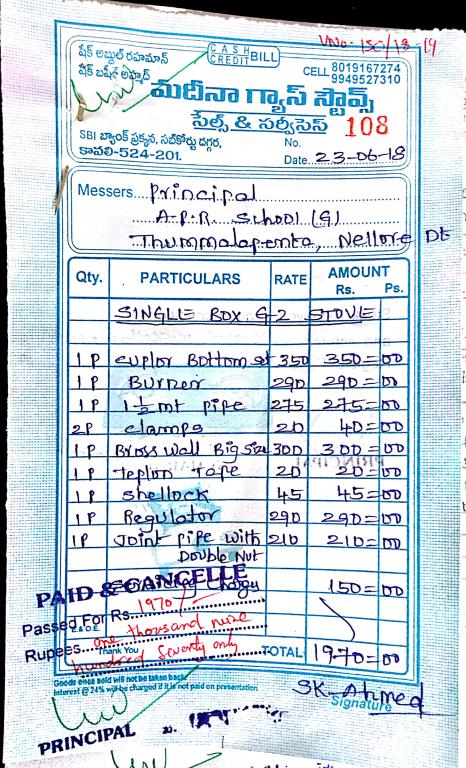 VNo- 150/18-19
షేక్ అబ్దుల్ రహమాన్
షేక్ బషీర్ అహ్మద్
CASH
CREDIT BILL
CELL 8019167274
9949527310
మదీనా గ్యాస్ స్టౌవ్స్
సేల్స్ & సర్వీసెస్
SBI బ్యాంక్ ప్రక్కన, సబ్‌కోర్టు దగ్గర,
కావలి-524-201.
No. 108
Date 23-06-18
Messers Principal
A.P.R. School (G)
Thummalapenta, Nellore Dt
Qty. PARTICULARS RATE AMOUNT
Rs. Ps.
SINGLE BOX G-2 STOVE
1 P Cuplor Bottom set 350 350=00
1 P Burner 290 290=00
1 P 1½ mt pipe 275 275=00
2P clamps 20 40=00
1 P Bross wall Big Size 300 300=00
1 P Teplon Tape 20 20=00
1 P Shellock 45 45=00
1 P Regulator 290 290=00
1P Joint pipe with 210 210=00
Double Nut
150=00
PAID & CANCELLE
Passed For Rs. 1970/-
E.&O.E.
Rupees one thousand nine
hundred Seventy only
Thank You
TOTAL 1970=00
Goods once sold will not be taken back
Interest @ 24% will be charged if it is not paid on presentation
SK. Ahmed
Signature
PRINCIPAL